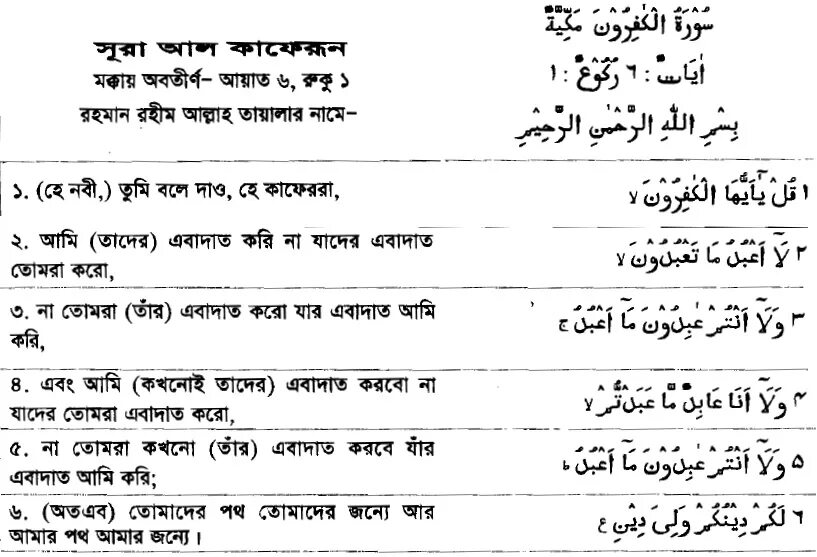 সূরা আল কাফেরূন
মক্কায় অবতীর্ণ- আয়াত ৬, রুকু ১
রহমান রহীম আল্লাহ তায়ালার নামে-
سُوْرَةُ الْكٰفِرُوْنَ مَكِّيَّةٌ
اٰيَاتٌ : ٦ رُكُوْعٌ : ١
بِسْمِ اللّٰهِ الرَّحْمٰنِ الرَّحِيْمِ
১. (হে নবী,) তুমি বলে দাও, হে কাফেররা,
١ قُلْ يٰۤاَيُّهَا الْكٰفِرُوْنَ ۙ
২. আমি (তাদের) এবাদাত করি না যাদের এবাদাত
তোমরা করো,
٢ لَاۤ اَعْبُدُ مَا تَعْبُدُوْنَ ۙ
৩. না তোমরা (তাঁর) এবাদাত করো যার এবাদাত আমি
করি,
٣ وَلَاۤ اَنْتُمْ عٰبِدُوْنَ مَاۤ اَعْبُدُ ۚ
৪. এবং আমি (কখনোই তাদের) এবাদাত করবো না
যাদের তোমরা এবাদাত করো,
٤ وَلَاۤ اَنَا عَابِدٌ مَّا عَبَدْتُّمْ ۙ
৫. না তোমরা কখনো (তাঁর) এবাদাত করবে যাঁর
এবাদাত আমি করি;
٥ وَلَاۤ اَنْتُمْ عٰبِدُوْنَ مَاۤ اَعْبُدُ ؕ
৬. (অতএব) তোমাদের পথ তোমাদের জন্যে আর
আমার পথ আমার জন্যে।
٦ لَكُمْ دِيْنُكُمْ وَلِىَ دِيْنِ ع